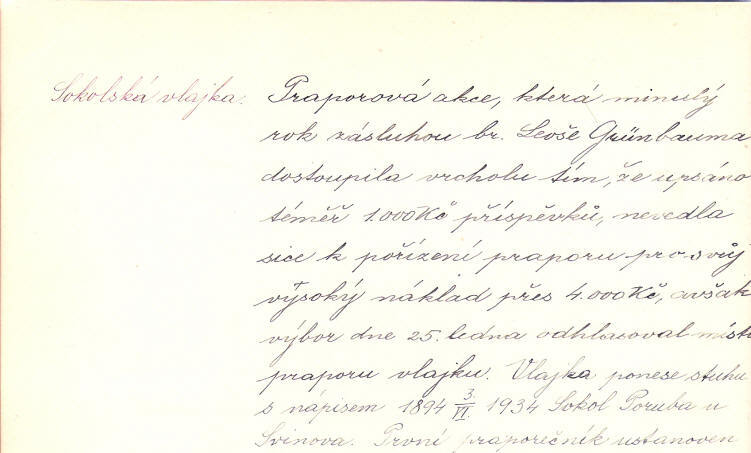 Sokolská vlajka. Praporová akce, která minulý
rok zásluhou br. Leoše Grünbauma
dostoupila vrcholu tím, že upsáno
téměř 1.000 Kč příspěvků, nevedla
sice k pořízení praporu pro svůj
vysoký náklad přes 4.000 Kč, avšak
výbor dne 25. ledna odhlasoval místo
praporu vlajku. Vlajka ponese stuhu
s nápisem 1894 3/VI. 1934 Sokol Poruba u
Svinova. První praporečník ustanoven